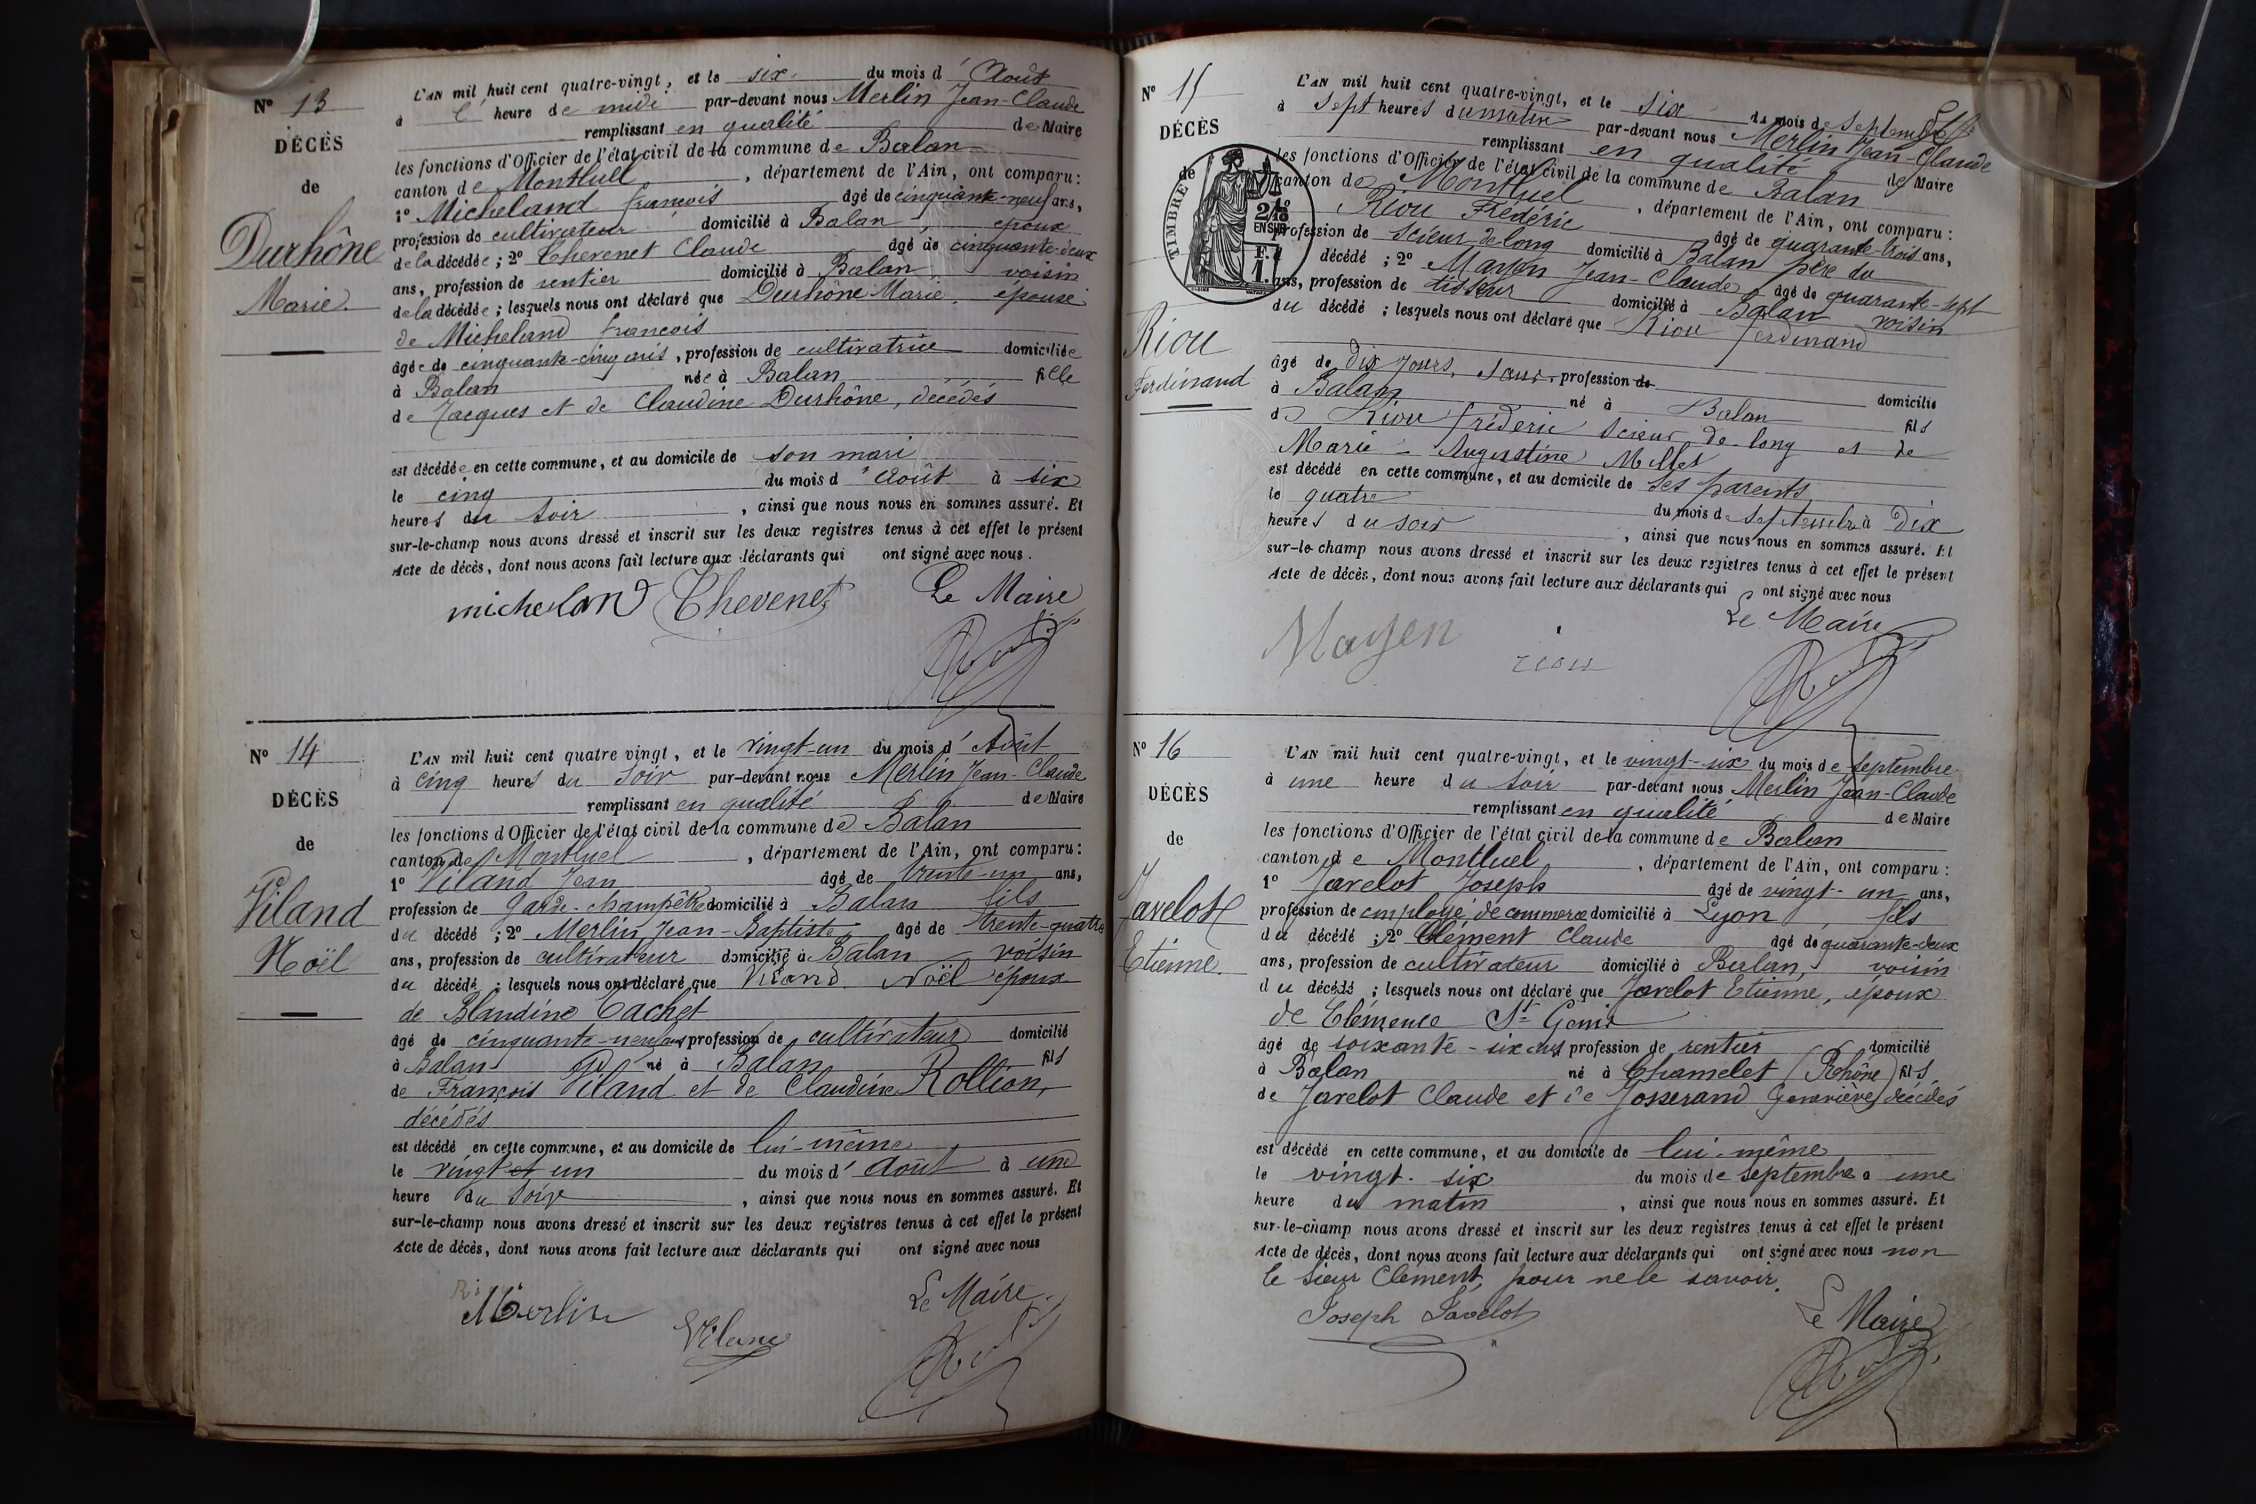 N° 13
DÉCÈS
de
Durhône
Marie.
L'AN mil huit cent quatre-vingt, et le six du mois d'Août
à l'heure de midi par-devant nous Merlin Jean-Claude
remplissant en qualité de Maire
les fonctions d'Officier de l'état civil de la commune de Balan
canton de Montluel, département de l'Ain, ont comparu:
1° Micheland françois âgé de cinquante-neuf ans,
profession de cultivateur domicilié à Balan, époux
de la décédée; 2° Chevenet Claude âgé de cinquante-deux
ans, profession de rentier domicilié à Balan, voisin
de la décédée; lesquels nous ont déclaré que Durhône Marie, épouse
de Micheland françois
âgée de cinquante-cinq ans, profession de cultivatrice domiciliée
à Balan née à Balan fille
de Jacques et de Claudine Durhône, décédés
est décédée en cette commune, et au domicile de son mari
le cinq du mois d'Août à six
heures du soir, ainsi que nous nous en sommes assuré. Et
sur-le-champ nous avons dressé et inscrit sur les deux registres tenus à cet effet le présent
Acte de décès, dont nous avons fait lecture aux déclarants qui ont signé avec nous.
micheland Chevenet Le Maire
N° 14
DÉCÈS
de
Viland
Noël
L'AN mil huit cent quatre vingt, et le vingt-un du mois d'Août
à cinq heures du soir par-devant nous Merlin Jean-Claude
remplissant en qualité de Maire
les fonctions d'Officier de l'état civil de la commune de Balan
canton de Montluel, département de l'Ain, ont comparu:
1° Viland Jean âgé de trente-un ans,
profession de Garde-champêtre domicilié à Balan fils
du décédé; 2° Merlin Jean-Baptiste âgé de trente-quatre
ans, profession de cultivateur domicilié à Balan voisin
du décédé; lesquels nous ont déclaré que Viland Noël époux
de Blandine Cachet
âgé de cinquante-neuf ans profession de cultivateur domicilié
à Balan né à Balan fils
de François Viland et de Claudine Rollion,
décédés
est décédé en cette commune, et au domicile de lui-même
le vingt et un du mois d'Août à une
heure du soir, ainsi que nous nous en sommes assuré. Et
sur-le-champ nous avons dressé et inscrit sur les deux registres tenus à cet effet le présent
Acte de décès, dont nous avons fait lecture aux déclarants qui ont signé avec nous
Merlin Viland Le Maire
N° 15
DÉCÈS
de
TIMBRE
2/10
EN SUS
F. 1
Riou
Ferdinand
L'AN mil huit cent quatre-vingt, et le six du mois de Septembre
à sept heures du matin par-devant nous Merlin Jean-Claude
remplissant en qualité de Maire
les fonctions d'Officier de l'état civil de la commune de Balan
canton de Montluel, département de l'Ain, ont comparu:
Riou Frédéric âgé de quarante-trois ans,
profession de Scieur de long domicilié à Balan père du
décédé; 2° Mayen Jean-Claude âgé de quarante-sept
ans, profession de tisseur domicilié à Balan voisin
du décédé; lesquels nous ont déclaré que Riou ferdinand
âgé de dix jours, sans profession de domicilié
à Balan né à Balan fils
de Riou frédéric Scieur de long et de
Marie-Augustine Milles
est décédé en cette commune, et au domicile de ses parents
le quatre du mois de septembre à Dix
heures du soir, ainsi que nous nous en sommes assuré. Et
sur-le-champ nous avons dressé et inscrit sur les deux registres tenus à cet effet le présent
Acte de décès, dont nous avons fait lecture aux déclarants qui ont signé avec nous
Le Maire
Mayen riou
N° 16
DÉCÈS
de
Javelot
Etienne.
L'AN mil huit cent quatre-vingt, et le vingt-six du mois de septembre
à une heure du soir par-devant nous Merlin Jean-Claude
remplissant en qualité de Maire
les fonctions d'Officier de l'état civil de la commune de Balan
canton de Montluel, département de l'Ain, ont comparu:
1° Javelot Joseph âgé de vingt-un ans,
profession de employé de commerce domicilié à Lyon fils
du décédé; 2° Clément Claude âgé de quarante-deux
ans, profession de cultivateur domicilié à Balan, voisin
du décédé; lesquels nous ont déclaré que Javelot Etienne, époux
de Clémence St Genis
âgé de soixante-six ans profession de rentier domicilié
à Balan né à Chamelet (Rhône) fils
de Javelot Claude et de Josserand Geneviève, décédés
est décédé en cette commune, et au domicile de lui-même
le vingt-six du mois de septembre à une
heure du matin, ainsi que nous nous en sommes assuré. Et
sur-le-champ nous avons dressé et inscrit sur les deux registres tenus à cet effet le présent
Acte de décès, dont nous avons fait lecture aux déclarants qui ont signé avec nous non
le sieur Clément, pour ne le savoir.
Joseph Javelot Le Maire